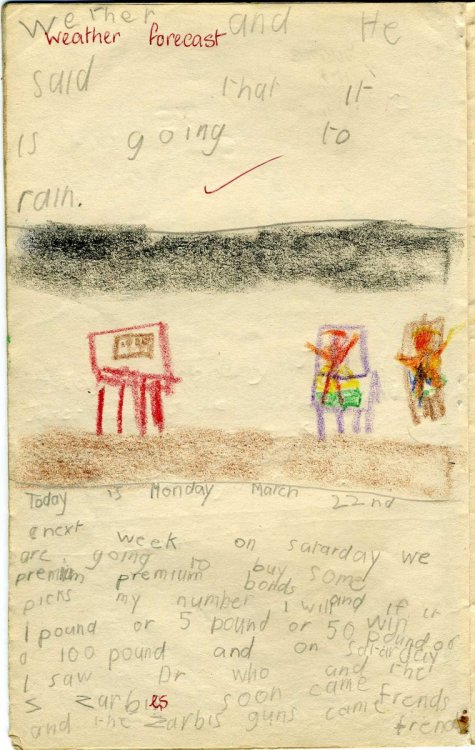 wether and He
weather forecast
said that it
is going to
rain.
Today is Monday March 22nd
next week on satarday we
are going to buy some
premium premium bonds and
picks my number I will if it
1 pound or 5 pound or 50 win
a 100 pound and on pound or
I saw Dr who and the
zarbies soon came frends
and the zarbis guns came frend